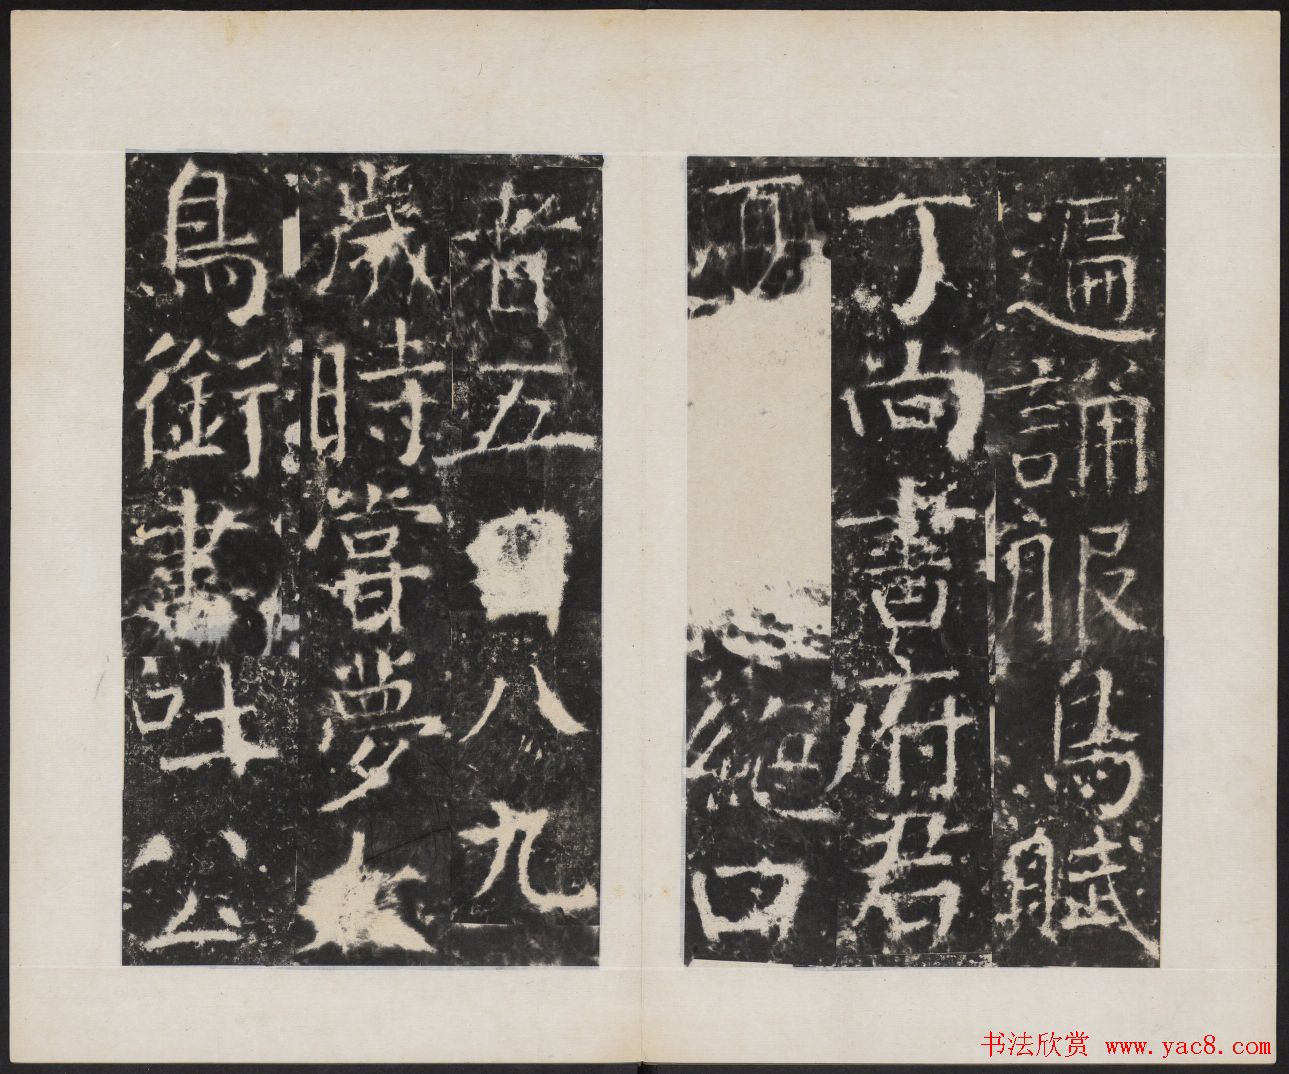 遍誦服鳥賦
丁尚書府君
絕口
者五日八九
歲時嘗夢大
鳥銜書吐公
书法欣赏 www.yac8.com